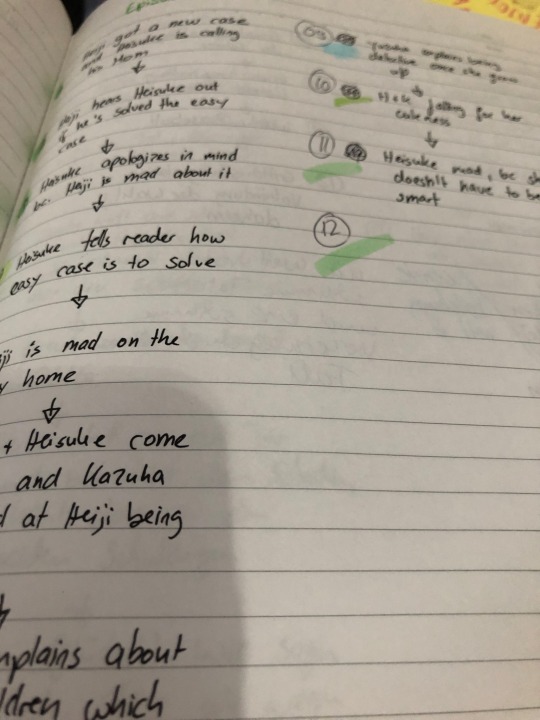 Episo
got a new case
and Heisuke is calling
his Mom
↓
Heiji hears Heisuke out
if he's solved the easy
case
↓
Heisuke apologizes in mind
bc. Heiji is mad about it
↓
Heisuke tells reader how
easy case is to solve
↓
iji is mad on the
y home
↓
+ Heisuke come
and Kazuha
d at Heiji being
mplains about
ldren which
09
explains being
detective once she
up
↓
10
falling for her
↓
11 Heisuke mad, bc sh
doesn't have to be
smart
12